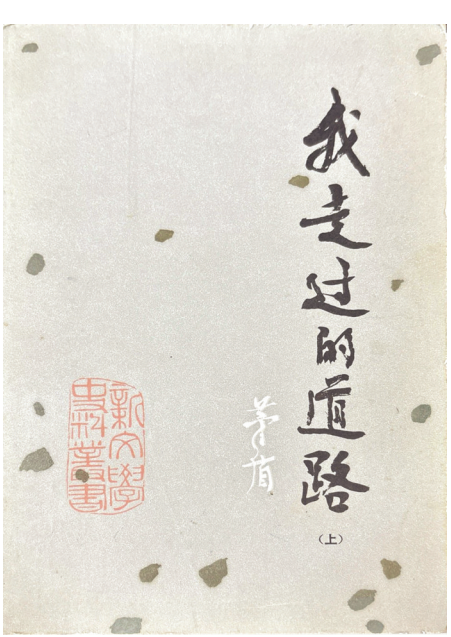 我走过的道路
（上）
茅盾
新文學
史料叢書